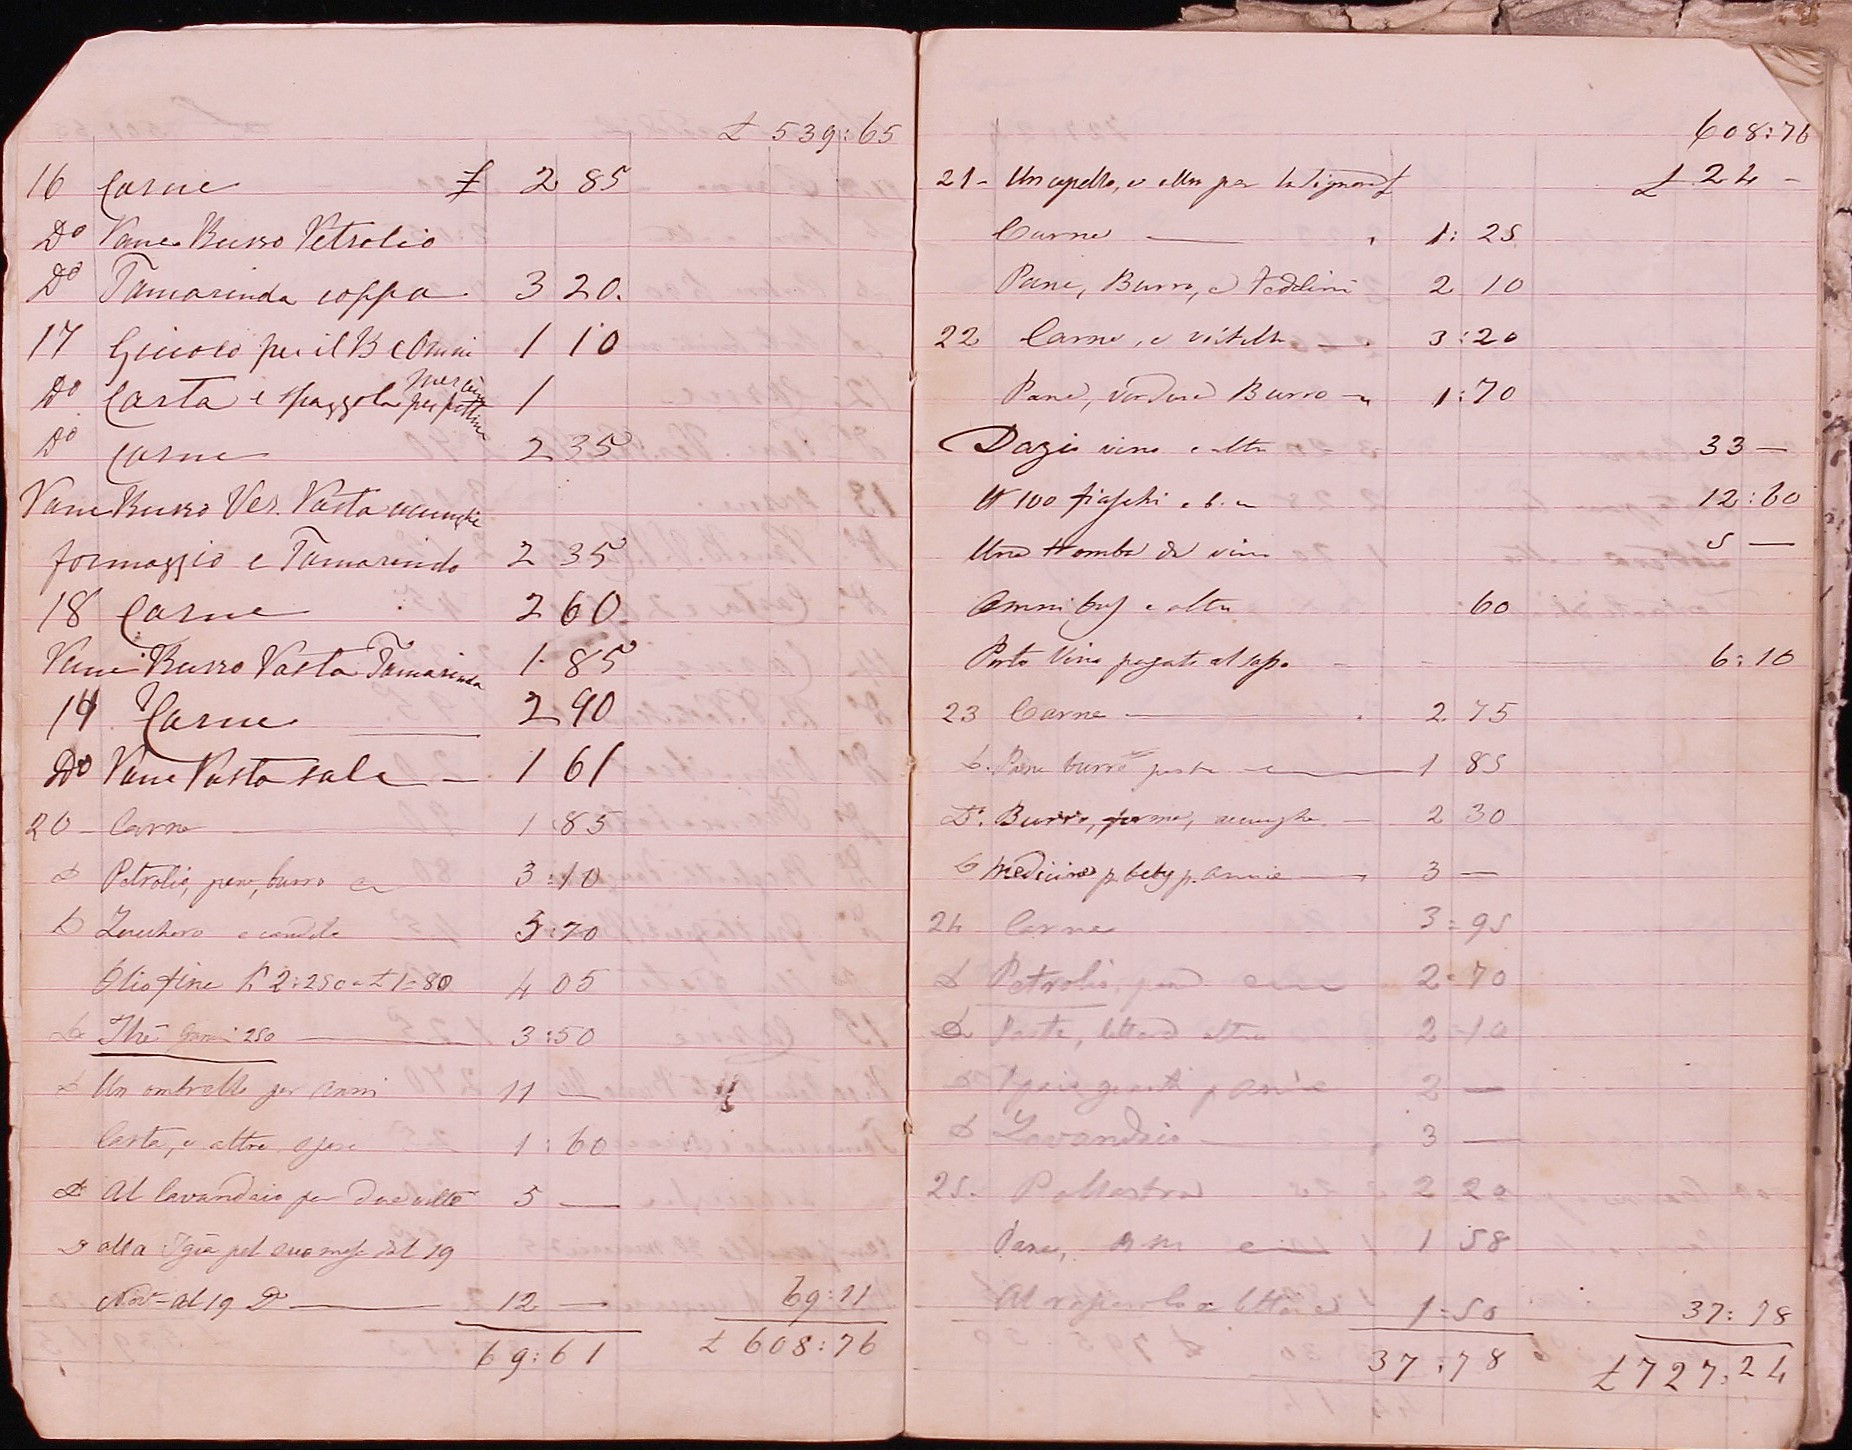 £ 539:65
16 Carne £ 2 85
Do Pane Burro Petrolio
Do Tamarinda coppa 3 20.
17 Giuoco per il B e Omni 1 10
Do Carta e spazzola per 1
Do Carne 2 35
Pane Burro Ver. Pasta acciughe
formaggio e Tamarindo 2 35
18 Carne 2 60
Pane Burro Pasta Tamarinda 1 85
19 Carne 2 90
Do Pane Pasta sale 1 61
20 Carne 1 85
D Petrolio, pane, burro 3:10
D Zucchero e candele 5:70
Olio fine K 2:250 a £ 1=80 4 05
D Thé Gram 250 3:50
D Un ombrello per Anni 11 —
Carta, e altre spese 1:60
D Al lavandaio per due volte 5 —
D alla pel suo mese dal 19
Nov— al 19 D 12 — 69:11
69:61 £ 608:76
608:76
21 - Un capello, e altro per la Signora £ 24 -
Carne 1:25
Pane, Burro, e Fedelini 2 10
22 Carne, e vitella 3:20
Pane, verdure Burro 1:70
Dazio vino e altro 33 —
N 100 fiaschi 12:60
Una tromba da vino 5 —
Omnibus e altro 60
Porto Vino pagato al 6:10
23 Carne 2 75
D. Pane burro pasta 1 85
D. Burro, acciughe 2 30
D Medicine p. beby p. Annie 3 —
24 Carne 3=95
D Petrolio, pane 2=70
D Pasta, latte altro 2=10
D guanti p Annie 2 —
D Lavandaio 3 —
25. Pollastra 2 20
Pane, 1 58
Al lettere 1=50 37:78
37:78 £ 727:24